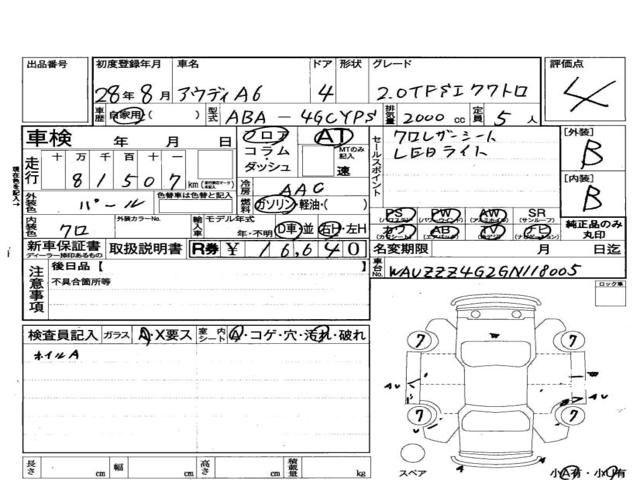 出品番号
初度登録年月
車名
ドア
形状
グレード
評価点
28年8月
アウディA6
4
2.0TFSIクワトロ
4
車歴
自家用・( )
型式
ABA-4GCYPS
排気量
2000 cc
定員
5人
車検
年 月 日
フロア
コラム
ダッシュ
AT
MTのみ記入
速
セールスポイント
クロレザーシート
LEDライト
[外装]
B
[内装]
B
走行
十 万 千 百 十 一
81507 km
冷房
AAC
外装色
パール
色替車は色替と記入
燃料
ガソリン・軽油・( )
内装色
クロ
外装カラーNo.
輸入車
モデル年式
年・不明
D車・並
右H・左H
PS
PW
AW
SR
(サンルーフ)
カワ
AB
TV
ナビ
純正品のみ丸印
現在色を記入→
新車保証書
ディーラー捺印あるもの
取扱説明書
R券 ¥16,640
名変期限
月
日迄
車台No.
WAUZZZ4G2GN118005
注意事項
後日品【
】
不具合箇所等
ロック車
検査員記入
ガラス
A・X要ス
室内
シート
A・コゲ・穴・汚れ・破れ
ホイルA
7
7
7
7
AU
W
W
AU
A
A
スペア
小A有・小U有
長さ
cm
幅
cm
高さ
cm
積載量
kg